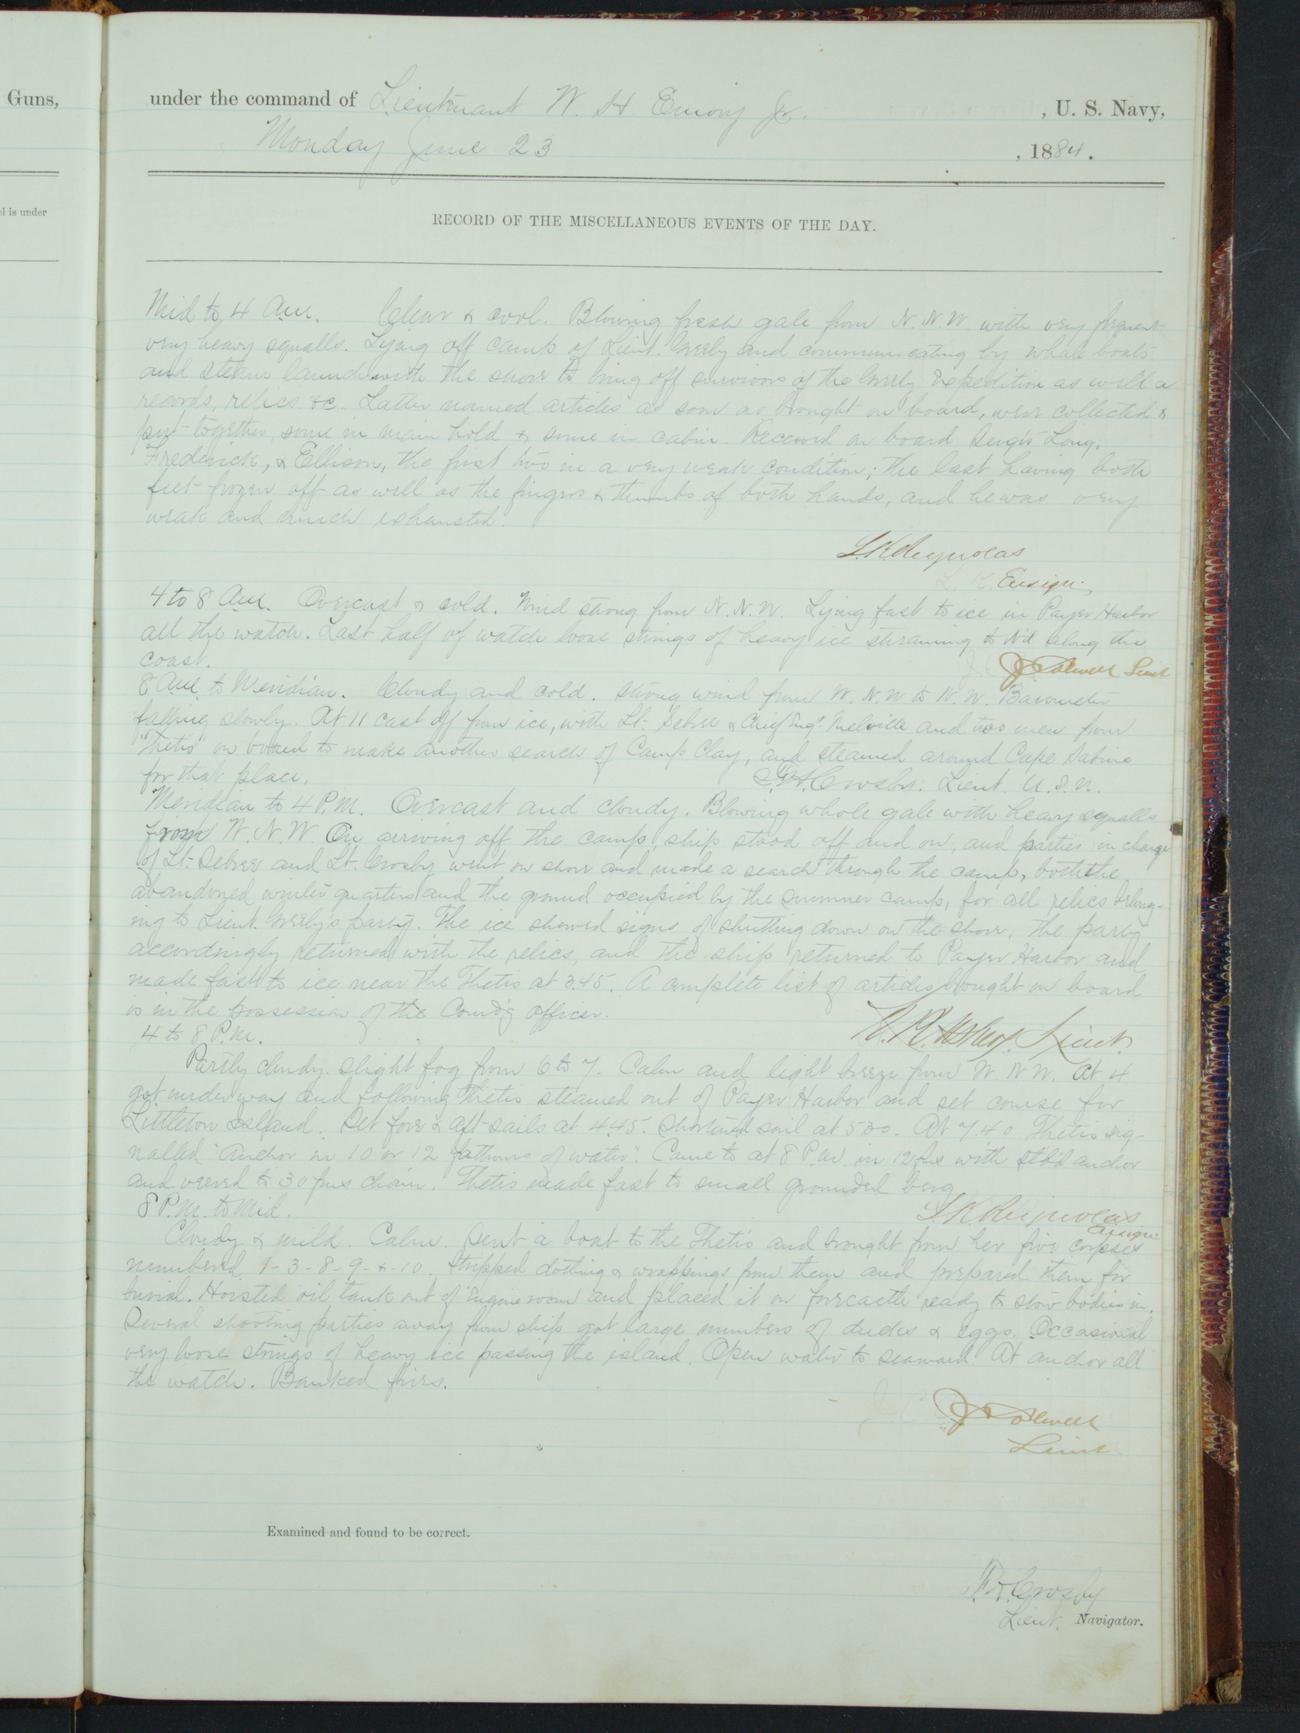 Guns,
under the command of Lieutenant W. H. Emory Jr. , U. S. Navy,
Monday June 23 , 1884.
el is under
RECORD OF THE MISCELLANEOUS EVENTS OF THE DAY.
Mid to 4 A.M. Clear & cool. Blowing fresh gale from N.N.W. with very frequent
very heavy squalls. Lying off camp of Lieut. Greely and communicating by whale boats
and steam launch with the shore to bring off survivors of the Greely Expedition as well as
records, relics &c. Latter named articles as soon as brought on board, were collected &
put together, some in main hold & some in cabin. Received on board Sergts Long,
Frederick, & Ellison, the first two in a very weak condition; the last having both
feet frozen off as well as the fingers & thumbs of both hands, and he was very
weak and much exhausted.
L. K. Reynolds
Ensign.
4 to 8 A.M. Overcast & cold. Wind strong from N.N.W. Lying fast to ice in Payer Harbor
all the watch. Last half of watch loose strings of heavy ice streaming to N'd along the
coast. J C Colwell Lieut
8 A.M. to Meridian. Cloudy and cold. Strong wind from W.N.W. to N.W. Barometer
falling slowly. At 11 cast off from ice, with Lt. Sebree & Chief Eng'r Melville and two men from
"Thetis" on board to make another search of Camp Clay, and steamed around Cape Sabine
for that place. F. H. Crosby. Lieut. U.S.N.
Meridian to 4 P.M. Overcast and cloudy. Blowing whole gale with heavy squalls
from W.N.W. On arriving off the camp, ship stood off and on, and parties in charge
of Lt. Sebree and Lt. Crosby went on shore and made a search through the camp, both the
abandoned winter quarters and the ground occupied by the summer camp, for all relics belong-
ing to Lieut. Greely's party. The ice showed signs of shutting down on the shore. The party
accordingly returned with the relics, and the ship returned to Payer Harbor and
made fast to ice near the Thetis at 3.45. A complete list of articles brought on board
is in the possession of the Comd'g Officer. Lieut.
4 to 8 P.M.
Partly cloudy. Slight fog from 6 to 7. Calm and light breeze from W.N.W. At 4
got underway and following Thetis steamed out of Payer Harbor and set course for
Littleton Island. Set fore & aft sails at 4.45. Shortened sail at 5.30. At 7.40 Thetis sig-
nalled "Anchor in 10 or 12 fathoms of water". Came to at 8 P.M. in 12 fms with stbd anchor
and veered to 30 fms chain. Thetis made fast to small grounded berg.
8 P.M. to Mid. L. K. Reynolds
Ensign.
Cloudy & mild. Calm. Sent a boat to the Thetis and brought from her five corpses
numbered 1-3-8-9-&-10. Stripped clothing & wrappings from them and prepared them for
burial. Hoisted oil tank out of Engine room and placed it on forecastle ready to stow bodies in.
Several shooting parties away from ship got large numbers of ducks & eggs. Occasional
very loose strings of heavy ice passing the island. Open water to seaward. At anchor all
the watch. Banked fires.
J C Colwell
Lieut
Examined and found to be correct.
F. H. Crosby
Lieut. Navigator.